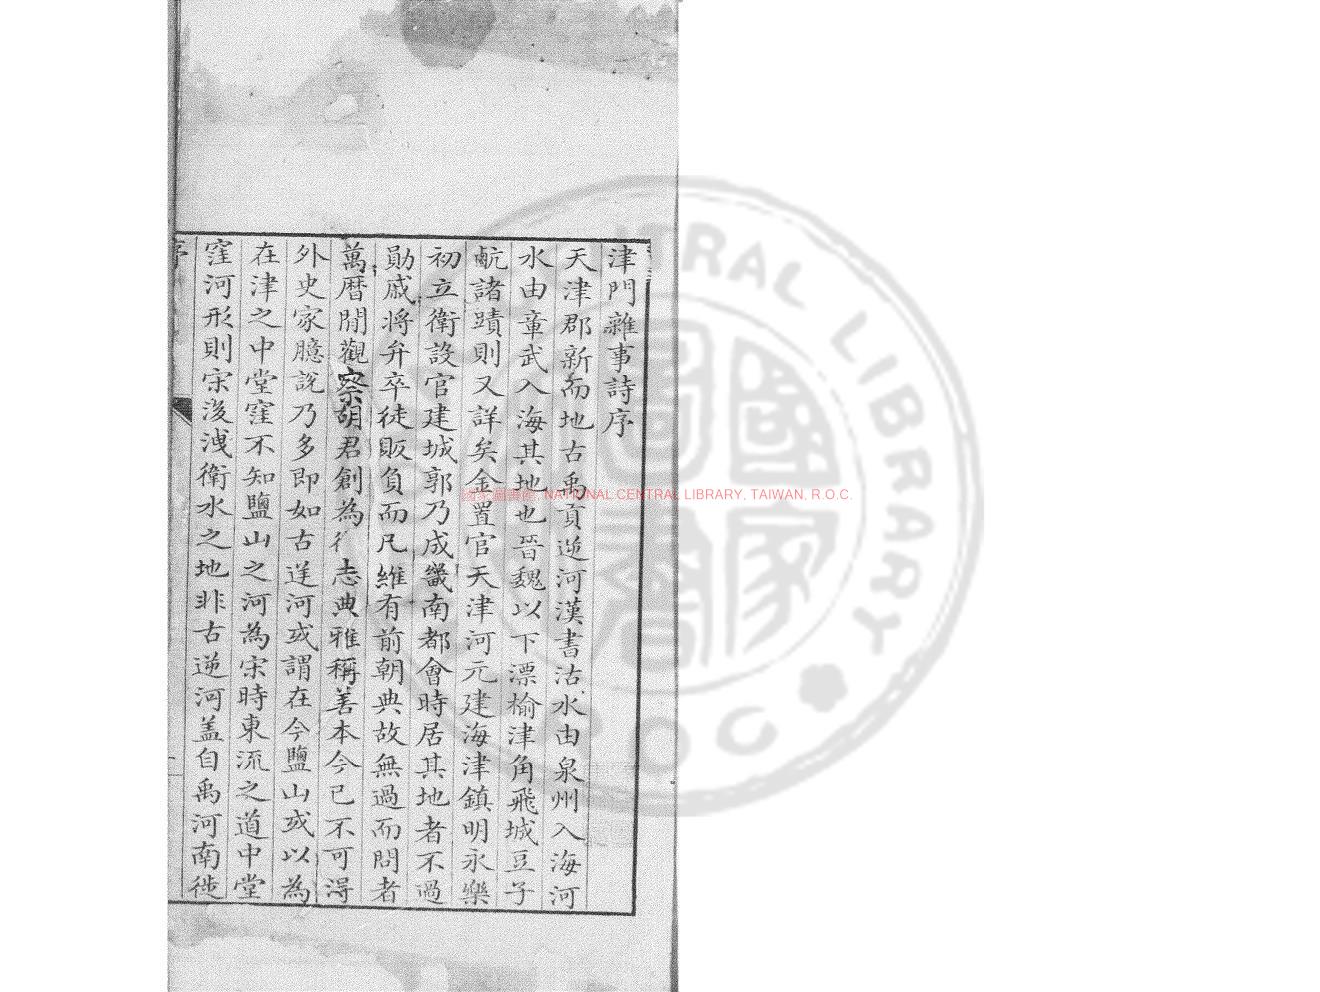 津門雜事詩序
天津郡新而地古禹貢逆河漢書沽水由泉州入海河
水由章武入海其地也晉魏以下漂榆津角飛城豆子
䴚諸蹟則又詳矣金置官天津河元建海津鎮明永樂
初立衛設官建城郭乃成畿南都會時居其地者不過
勛戚將弁卒徒販負而凡維有前朝典故無過而問者
萬曆間觀察胡君創為志典雅稱善本今已不可得
外史家臆說乃多即如古逆河或謂在今鹽山或以為
在津之中堂窪不知鹽山之河為宋時東流之道中堂
窪河形則宋浚洩衛水之地非古逆河蓋自禹河南徙
序
國家圖書館, NATIONAL CENTRAL LIBRARY, TAIWAN, R.O.C.